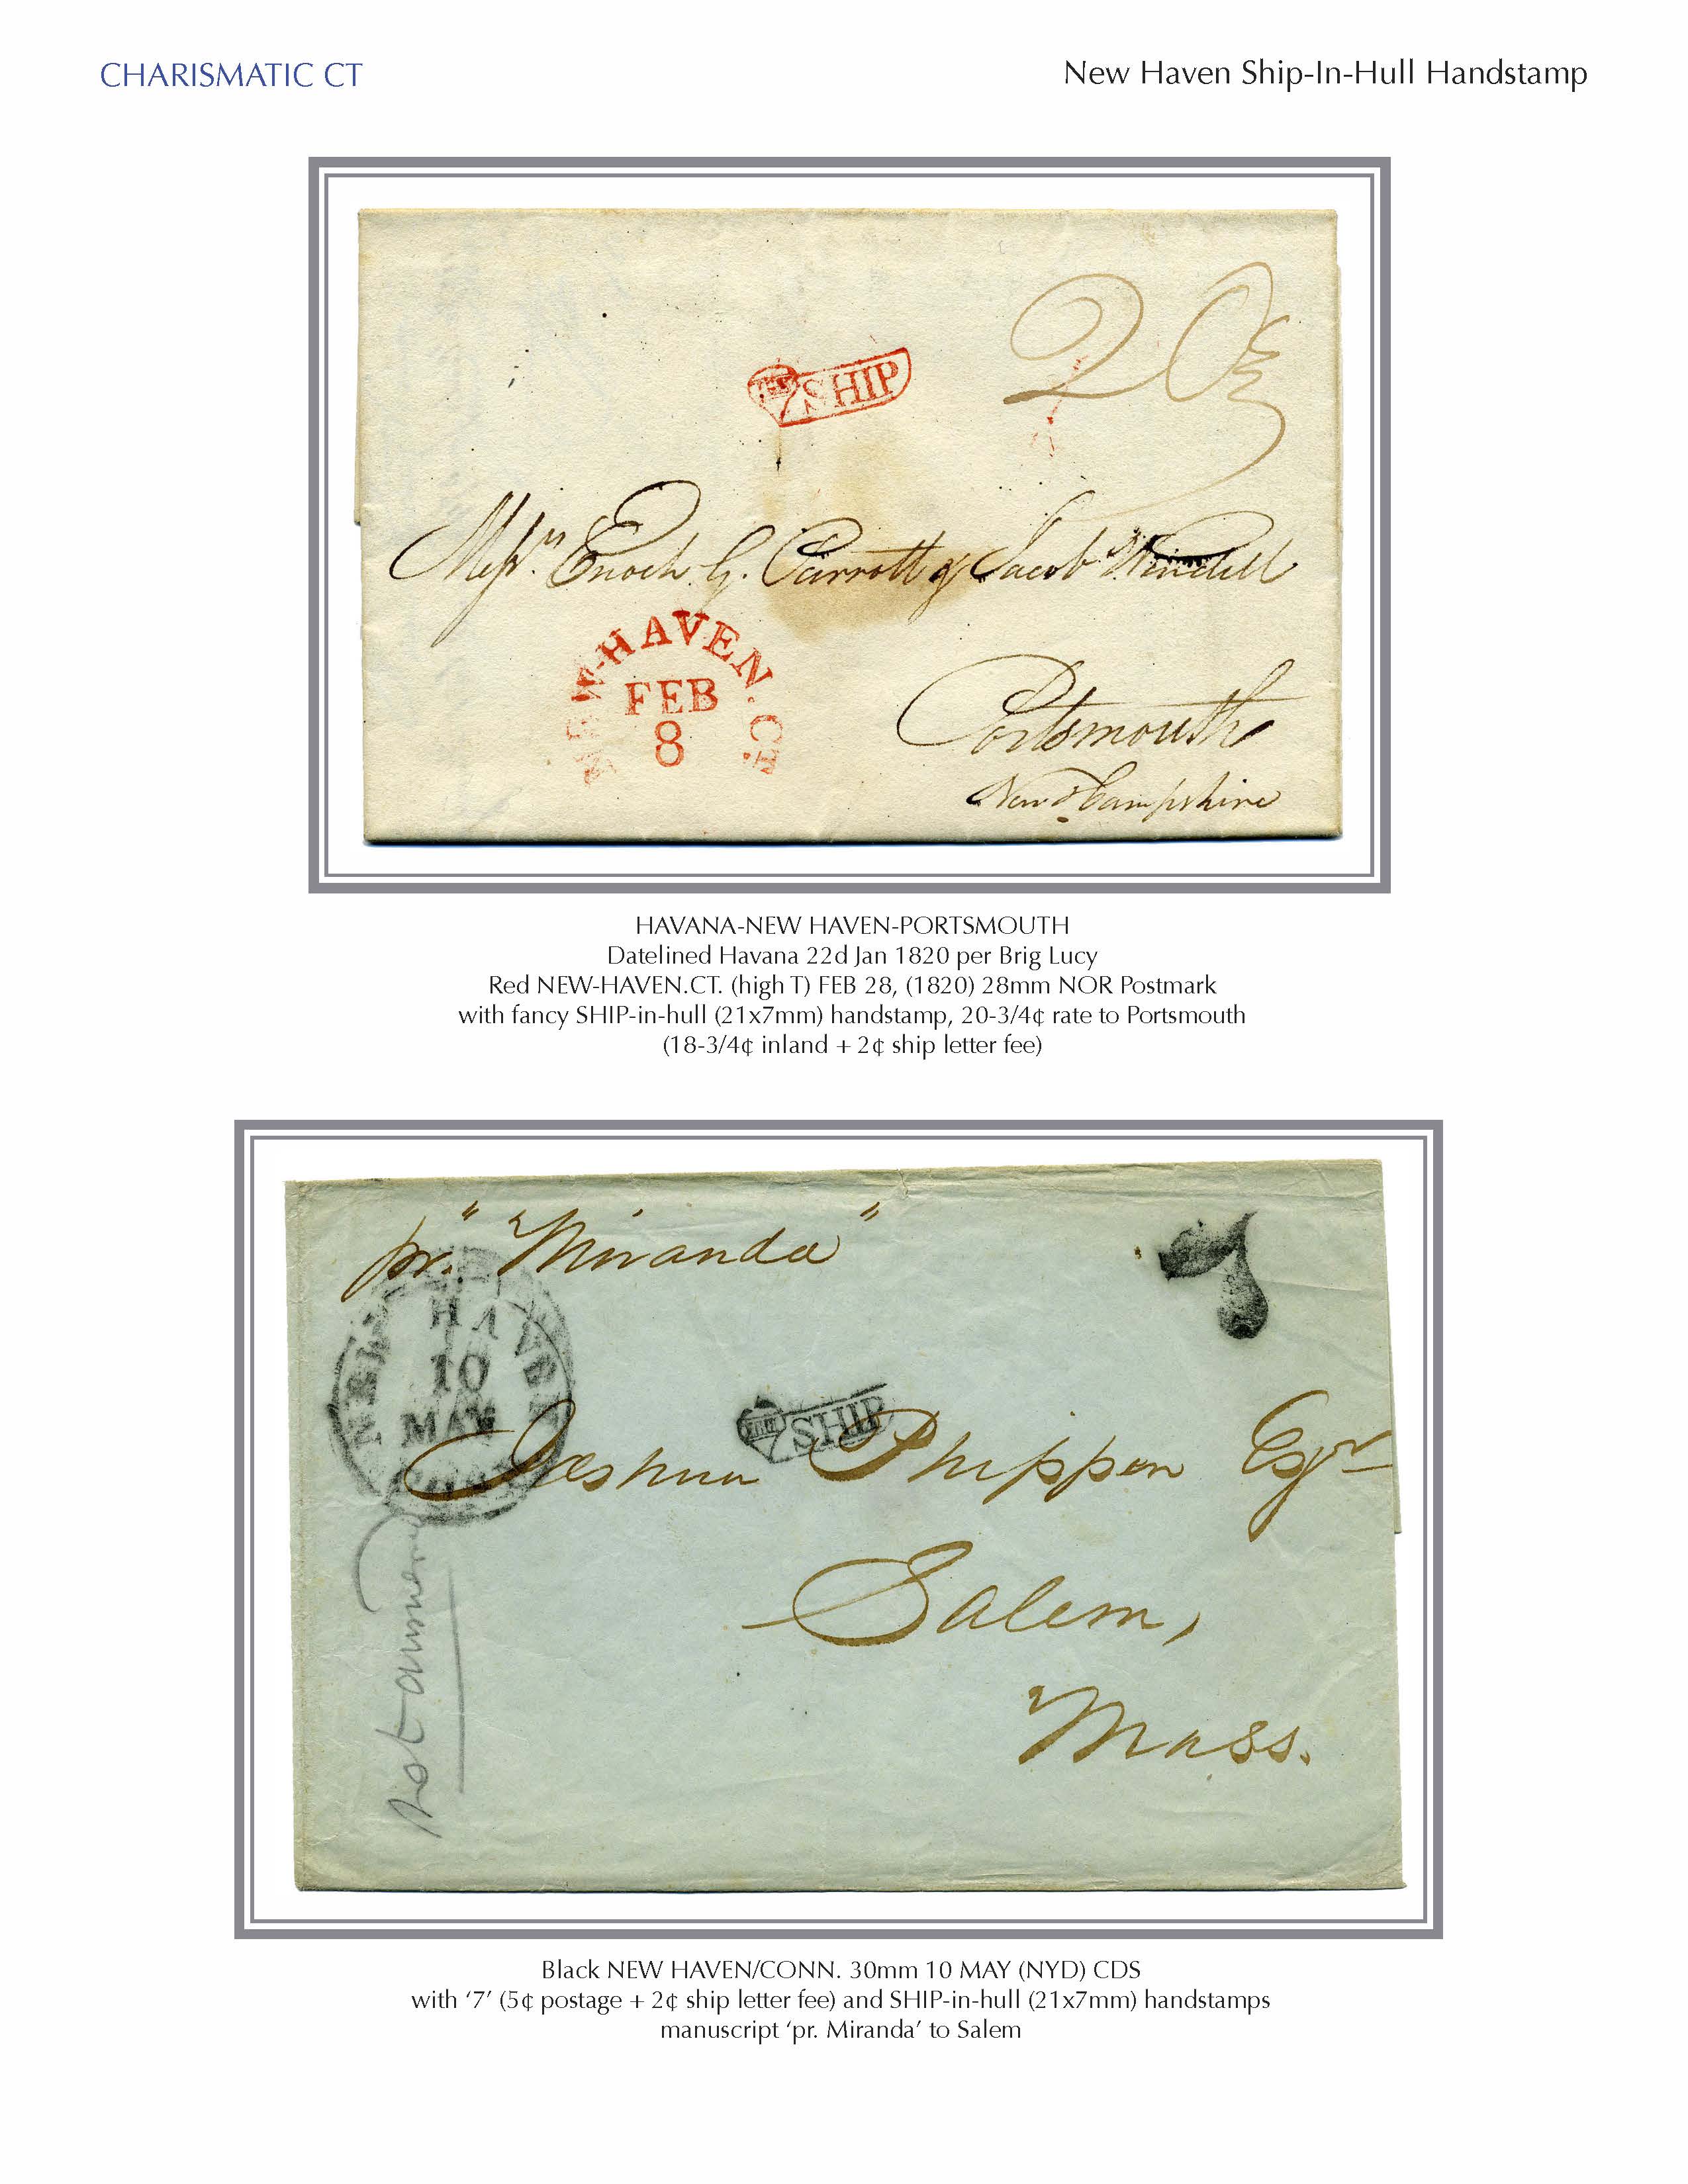 CHARISMATIC CT
New Haven Ship-In-Hull Handstamp
20 3/4
SHIP
Messrs Enoch G. Parrott & Jacob Wendell
NEW-HAVEN.CT.
FEB
8
Portsmouth
New Hampshire
HAVANA-NEW HAVEN-PORTSMOUTH
Datelined Havana 22d Jan 1820 per Brig Lucy
Red NEW-HAVEN.CT. (high T) FEB 28, (1820) 28mm NOR Postmark
with fancy SHIP-in-hull (21x7mm) handstamp, 20-3/4¢ rate to Portsmouth
(18-3/4¢ inland + 2¢ ship letter fee)
pr. "Miranda"
7
NEW HAVEN
10
MAY
SHIP
Joshua Phippen Esqr
Salem,
Mass.
not answered
Black NEW HAVEN/CONN. 30mm 10 MAY (NYD) CDS
with ‘7’ (5¢ postage + 2¢ ship letter fee) and SHIP-in-hull (21x7mm) handstamps
manuscript ‘pr. Miranda’ to Salem